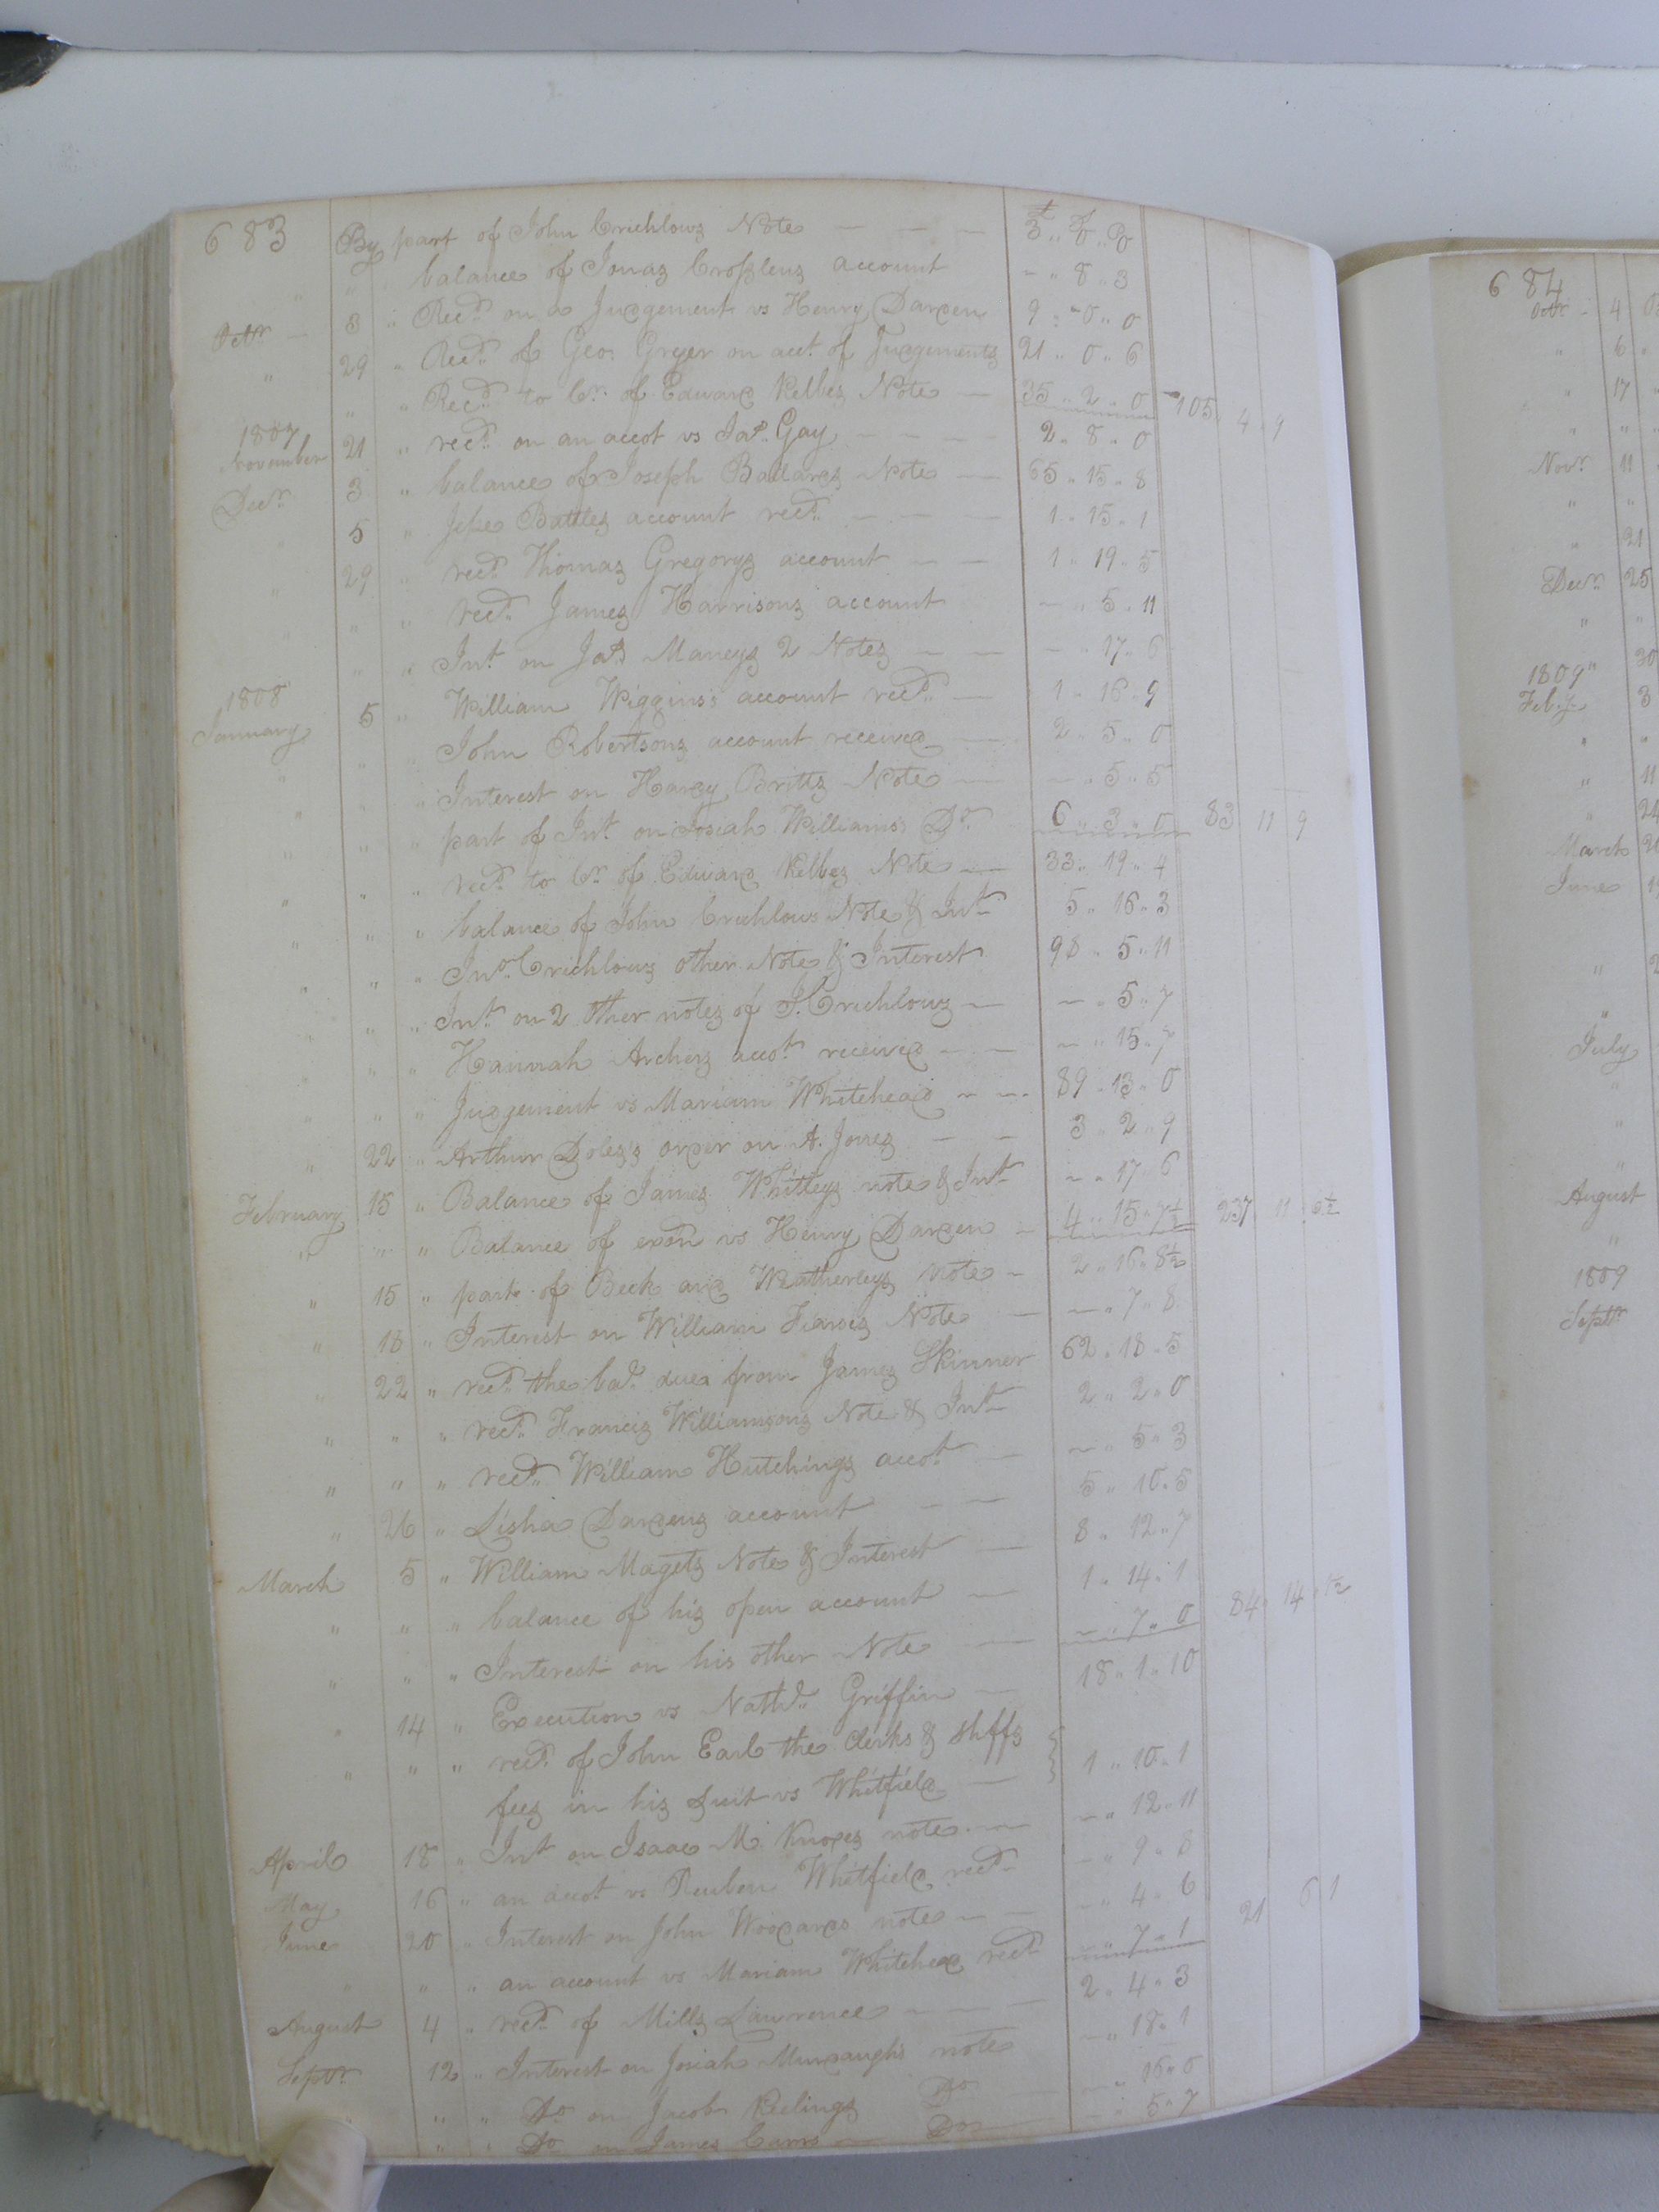 683 By part of John Crichlows Note — — — 3 .. 0 .. 0
" " balance of Jonas Crosslens account — " 8 .. 3
Octbr — 8 " Recd. on a Judgement vs Henry Darden 9 .. 0 .. 0
" 29 " Recd. of Geo. Greyer on acct. of Judgements 21 .. 0 .. 6
" " Recd. to Cr. of Edward Kelles Note — 35 .. 2 .. 0 105 " 4 " 9
1807
November 21 " recd. on an accot vs Jas. Gay — — — — 2 .. 8 .. 0
Decr. 3 " balance of Joseph Ballards Note — — 65 .. 15 .. 8
" 5 " Jesse Battles account recd. — — — 1 .. 15 .. 1
" 29 " recd. Thomas Gregorys account — — 1 .. 19 .. 5
" " " recd. James Harrisons account — " 5 .. 11
" " Int. on Jas. Maneys 2 Notes — — — " 17 .. 6
1808
January 5 " William Wiggins's account recd. — 1 .. 16 .. 9
" " " John Robertsons account received — 2 .. 5 .. 0
" " " Interest on Hardy Britts Note — — " 5 .. 5
" " " part of Int. on Josiah Williams's Do. 6 .. 3 .. 0 83 11 9
" " " recd. to Cr. of Edward Kelles Note — 33 .. 19 .. 4
" " " balance of John Crichlows Note & Int. 5 .. 16 .. 3
" " " Jno. Crichlows other Note & Interest 98 .. 5 .. 11
" " " Int. on 2 other notes of J. Crichlows — — " 5 .. 7
" " " Hannah Archers accot. received — — — " 15 .. 7
" " " Judgement vs Mariam Whitehead — — 89 .. 13 .. 0
" 22 " Arthur Doles's order on A. Jones — — 3 .. 2 .. 9
February 15 " Balance of James Whitleys note & Int. — " 17 .. 6
" " " Balance of exon vs Henry Darden — 4 .. 15 .. 7½ 237 11 6½
" 15 " part of Beck and Weatherleys note — 2 .. 16 .. 8½
" 18 " Interest on William Note — — " 7 .. 8
" 22 " recd. the bal. due from James Skinner 62 .. 18 .. 5
" " " recd. Francis Williamsons Note & Int. 2 .. 2 .. 0
" " " recd. William Hutchings accot. — — " 5 .. 3
" 26 " Lisha Dardens account — — 5 .. 10 .. 5
March 5 " William Magets Note & Interest — 8 .. 12 .. 7
" " " balance of his open account — 1 .. 14 .. 1
" " " Interest on his other Note — — " 7 .. 0 84 14 1½
" 14 " Execution vs Nathl. Griffin — 18 .. 1 .. 10
" " " recd. of John Earl the Clerks & Shffs }
fees in his Suit vs Whitfield — } 1 .. 10 .. 1
April 18 " Int. on Isaac M. Knoxes note — — " 12 .. 11
May 16 " an accot. vs Reuben Whitfield recd. — " 9 .. 8
June 20 " Interest on John Woodards note — — — " 4 .. 6
" " " an account vs Mariam Whitehead recd. — " 7 .. 1 21 6 1
August 4 " recd. of Mills Lawrence — — — 2 .. 4 .. 3
Septr. 12 " Interest on Josiah Murdaughs note — " 18 .. 1
" " " Do. on Jacob Keelings Do. — — " 16 .. 0
" " Do. on James Cams — Do. — — " 5 .. 7
684
Octr. 4
" 6
" 17
" "
Novr. 11
" "
" 21
Decr. 25
" "
1809 " 30
Feby. 3
" "
" 11
" 24
March
June
"
"
July
"
"
"
August
"
1809
Septbr